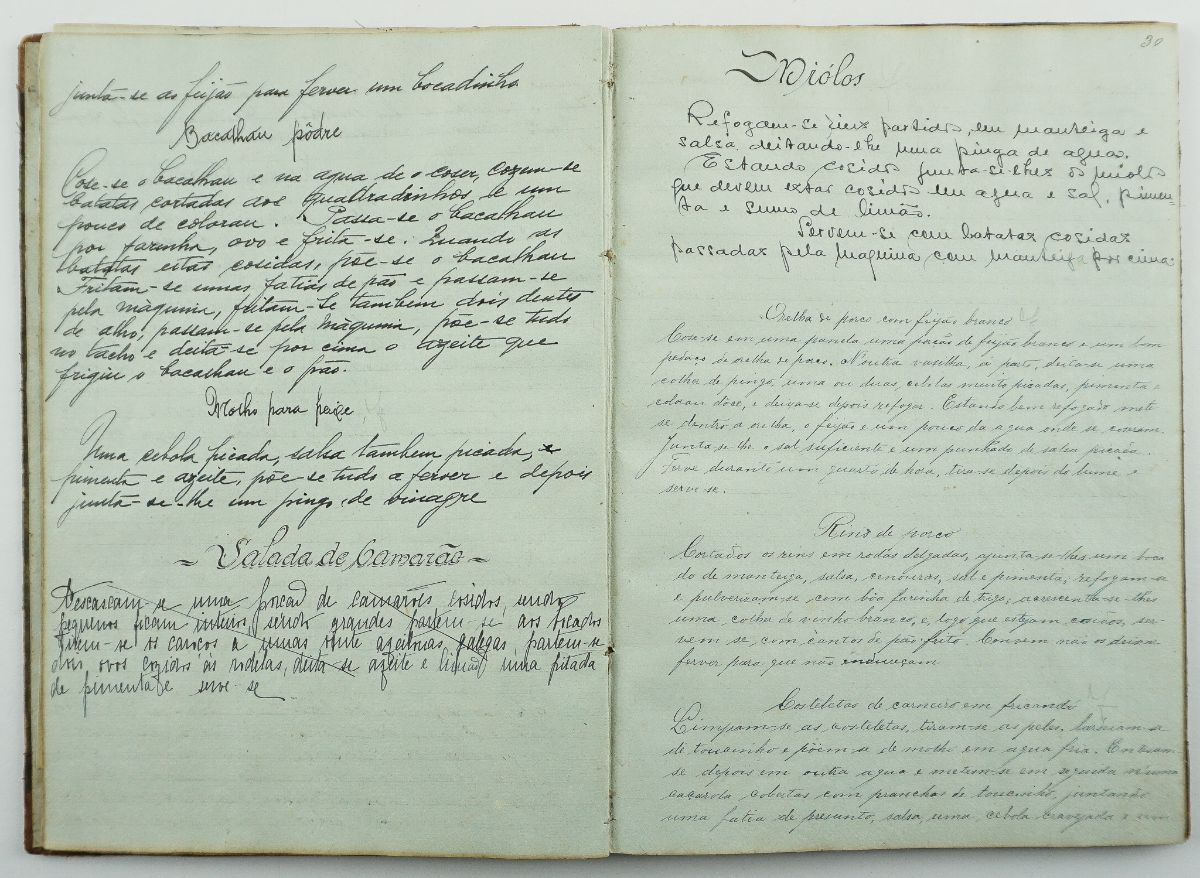 junta-se ao feijão para ferver um bocadinho
Bacalhau pôdre
Cose-se o bacalhau e na agua de o coser, cozem-se
batatas cortadas aos quadradinhos e um
pouco de colorau. Passa-se o bacalhau
por farinha, ovo e frita-se. Quando as
batatas estão cosidas, põe-se o bacalhau
Fritam-se umas fatias de pão e passam-se
pela màquina, fritam-se tambem dois dentes
de alho, passam-se pela màquina, põe-se tudo
no tacho e deita-se por cima o azeite que
frigiu o bacalhau e o pão.
Molho para peixe
Uma cebola picada, salsa tambem picada, e
pimenta e azeite, põe-se tudo a ferver e depois
junta-se-lhe um pingo de vinagre
~ Salada de Camarão ~
Descascam-se uma porcão de camarões cosidos, sendo
pequenos ficam inteiros, sendo grandes partem-se aos bocados
tirem-se os caroços a umas vinte azeitonas galegas, partem-se
dois ovos cozidos ás rodelas, deita-se azeite e limão uma pitada
de pimenta e serve-se
30
Miólos
Refogam-se rins partidos, em manteiga e
salsa, deitando-lhe uma pinga de agua.
Estando cosidos junta-se-lhes os miolos
que devem estar cosidos em agua e sal, pimen-
ta e sumo de limão.
Servem-se com batatas cosidas
passadas pela maquina com manteiga por cima
Orelha de porco com feijão branco
Cose-se em uma panela uma poção de feijão branco e um bom
pedaço de orelha de porco. N'outra vasilha, á parte, deita-se uma
colha de pingo, uma ou duas, cebolas muito picadas, pimenta e
colorau doce, e deixa-se depois refogar. Estando bem refogado mete
se dentro a orelha, o feijão e um pouco da agua onde se coseram.
Junta-se-lhe o sal suficiente e um punhado de salsa picada.
Ferve durante um quarto de hora, tira-se depois do lume e
serve-se.
Rins de porco
Cortados os rins em rodas delgadas, ajunta-se-lhes um boca
do de manteiga, salsa, cenouras, sal e pimenta; refogam-se
e pulverizam-se com bôa farinha de trigo; acrescenta-se-lhes
uma colher de vinho branco, e logo que estejam cosidos, ser-
vem-se, com côdeas de pão frito. Convem não os deixar
ferver para que não endureçam.
Costeletas de carneiro em fricandó
Limpam-se as costeletas, tiram-se as peles, lardeam-se
de toucinho e põem-se de molho em agua fria. Enxugam-
se depois em outra agua e metem-se em seguida n'uma
caçarola cobertas com pranchas de toucinho, juntando
uma fatia de presunto, salsa, uma cebola cravejada e um